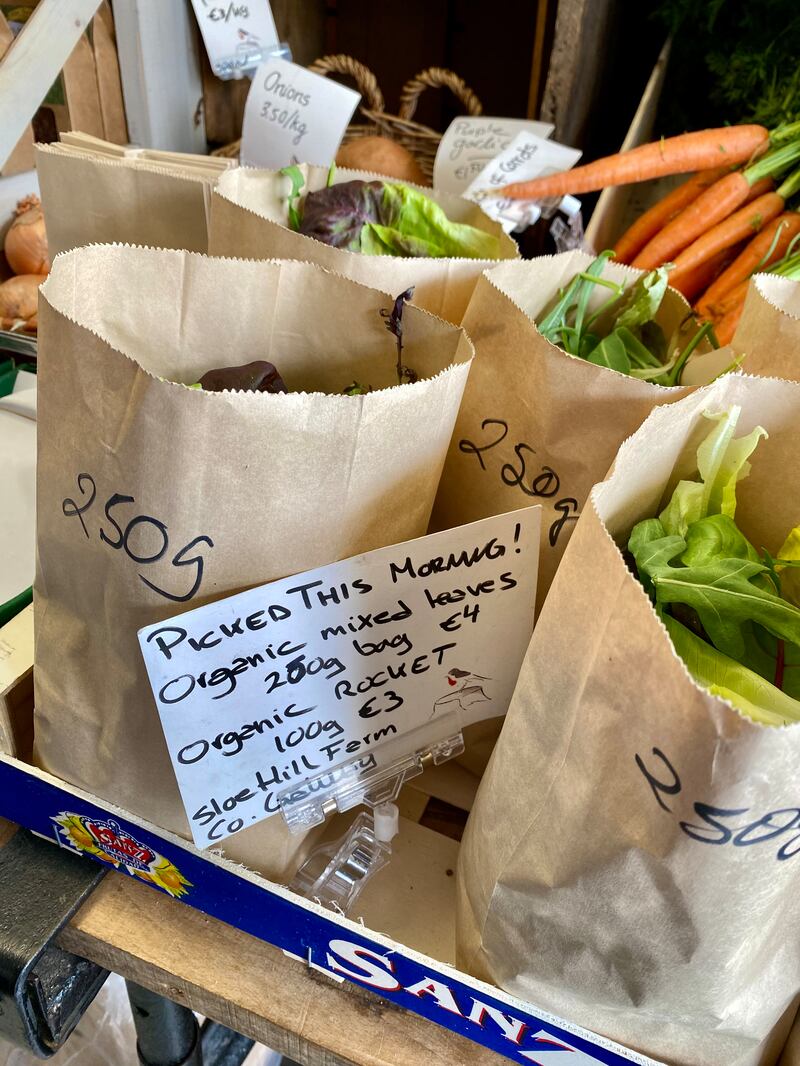 €3/kg
Onions
3.50/kg
Purple
garlic
of Carrots
250g
250g
PICKED THIS MORNING!
Organic mixed leaves
250g bag €4
Organic ROCKET
100g €3
Sloe Hill Farm
Co. Galway
250g
SANZ
SANZ